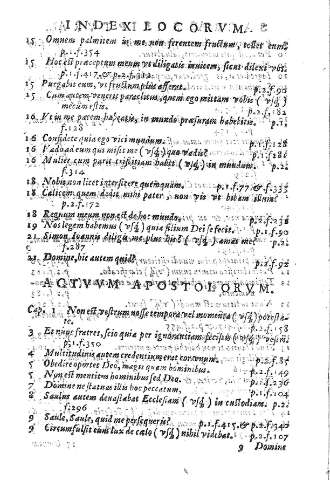 INDEX LOCORVM.
15 Omnem palmitem in me, non ferentem fructum, tollet eum.
p.1.f.354
15 Hoc est præceptum meum vt diligatis inuicem, sicut dilexi vos.
p.1.f.417. & p.2.f.312.
15 Purgabit eum, vt fructum plus afferat. p.2.f.90
15 Cum autem venerit paracletus, quem ego mittam vobis (vsq;)
meum est. p.2.f.182
16 Vt in me pacem habeatis, in mundo pressuram habebitis. p.1.
f.128
16 Confidete quia ego vici mundum. p.1.f.128
16 Vado ad eum qui misit me (vsq;) quo vadis? p.1.f.186
16 Mulier cum parit tristitiam habet (vsq;) in mundum. p.2.
f.314
18 Nobis non licet interficere quemquam. p.1.f.77. & f.333
18 Calicem quem dedit mihi pater, non vis vt bibam illum?
p.2.f.172
18 Regnum meum non est de hoc mundo. p.2.f.258
19 Nos legem habemus (vsq;) quia filium Dei se fecit. p.1.f.90
21 Simon Ioannis diligis me plus his? (vsq;) amas me? p.2.
f.287
21 Domine, hic autem quid? p.2.f.92
ACTVVM APOSTOLORVM.
Cap. 1 Non est vestrum nosse tempora vel momenta (vsq;) potesta-
p.2.f.158
3 Et nunc fratres, scio quia per ignorantiam fecistis (vsq;)
p.1.f.350
4 Multitudinis autem credentium erat cor vnum. p.2.f.85
5 Obedire oportet Deo, magis quam hominibus. p.1.f.149
5 Non est mentitus hominibus sed Deo. p.2.f.231
7 Domine ne statuas illis hoc peccatum. p.1.f.196
8 Saulus autem deuastabat Ecclesiam (vsq;) in custodiam. p.2.
f.296
9 Saule, Saule, quid me persequeris? p.1.f.415. & p.2.f.340
9 Circumfulsit eum lux de cælo (vsq;) nihil videbat. p.2.f.107
9 Domine